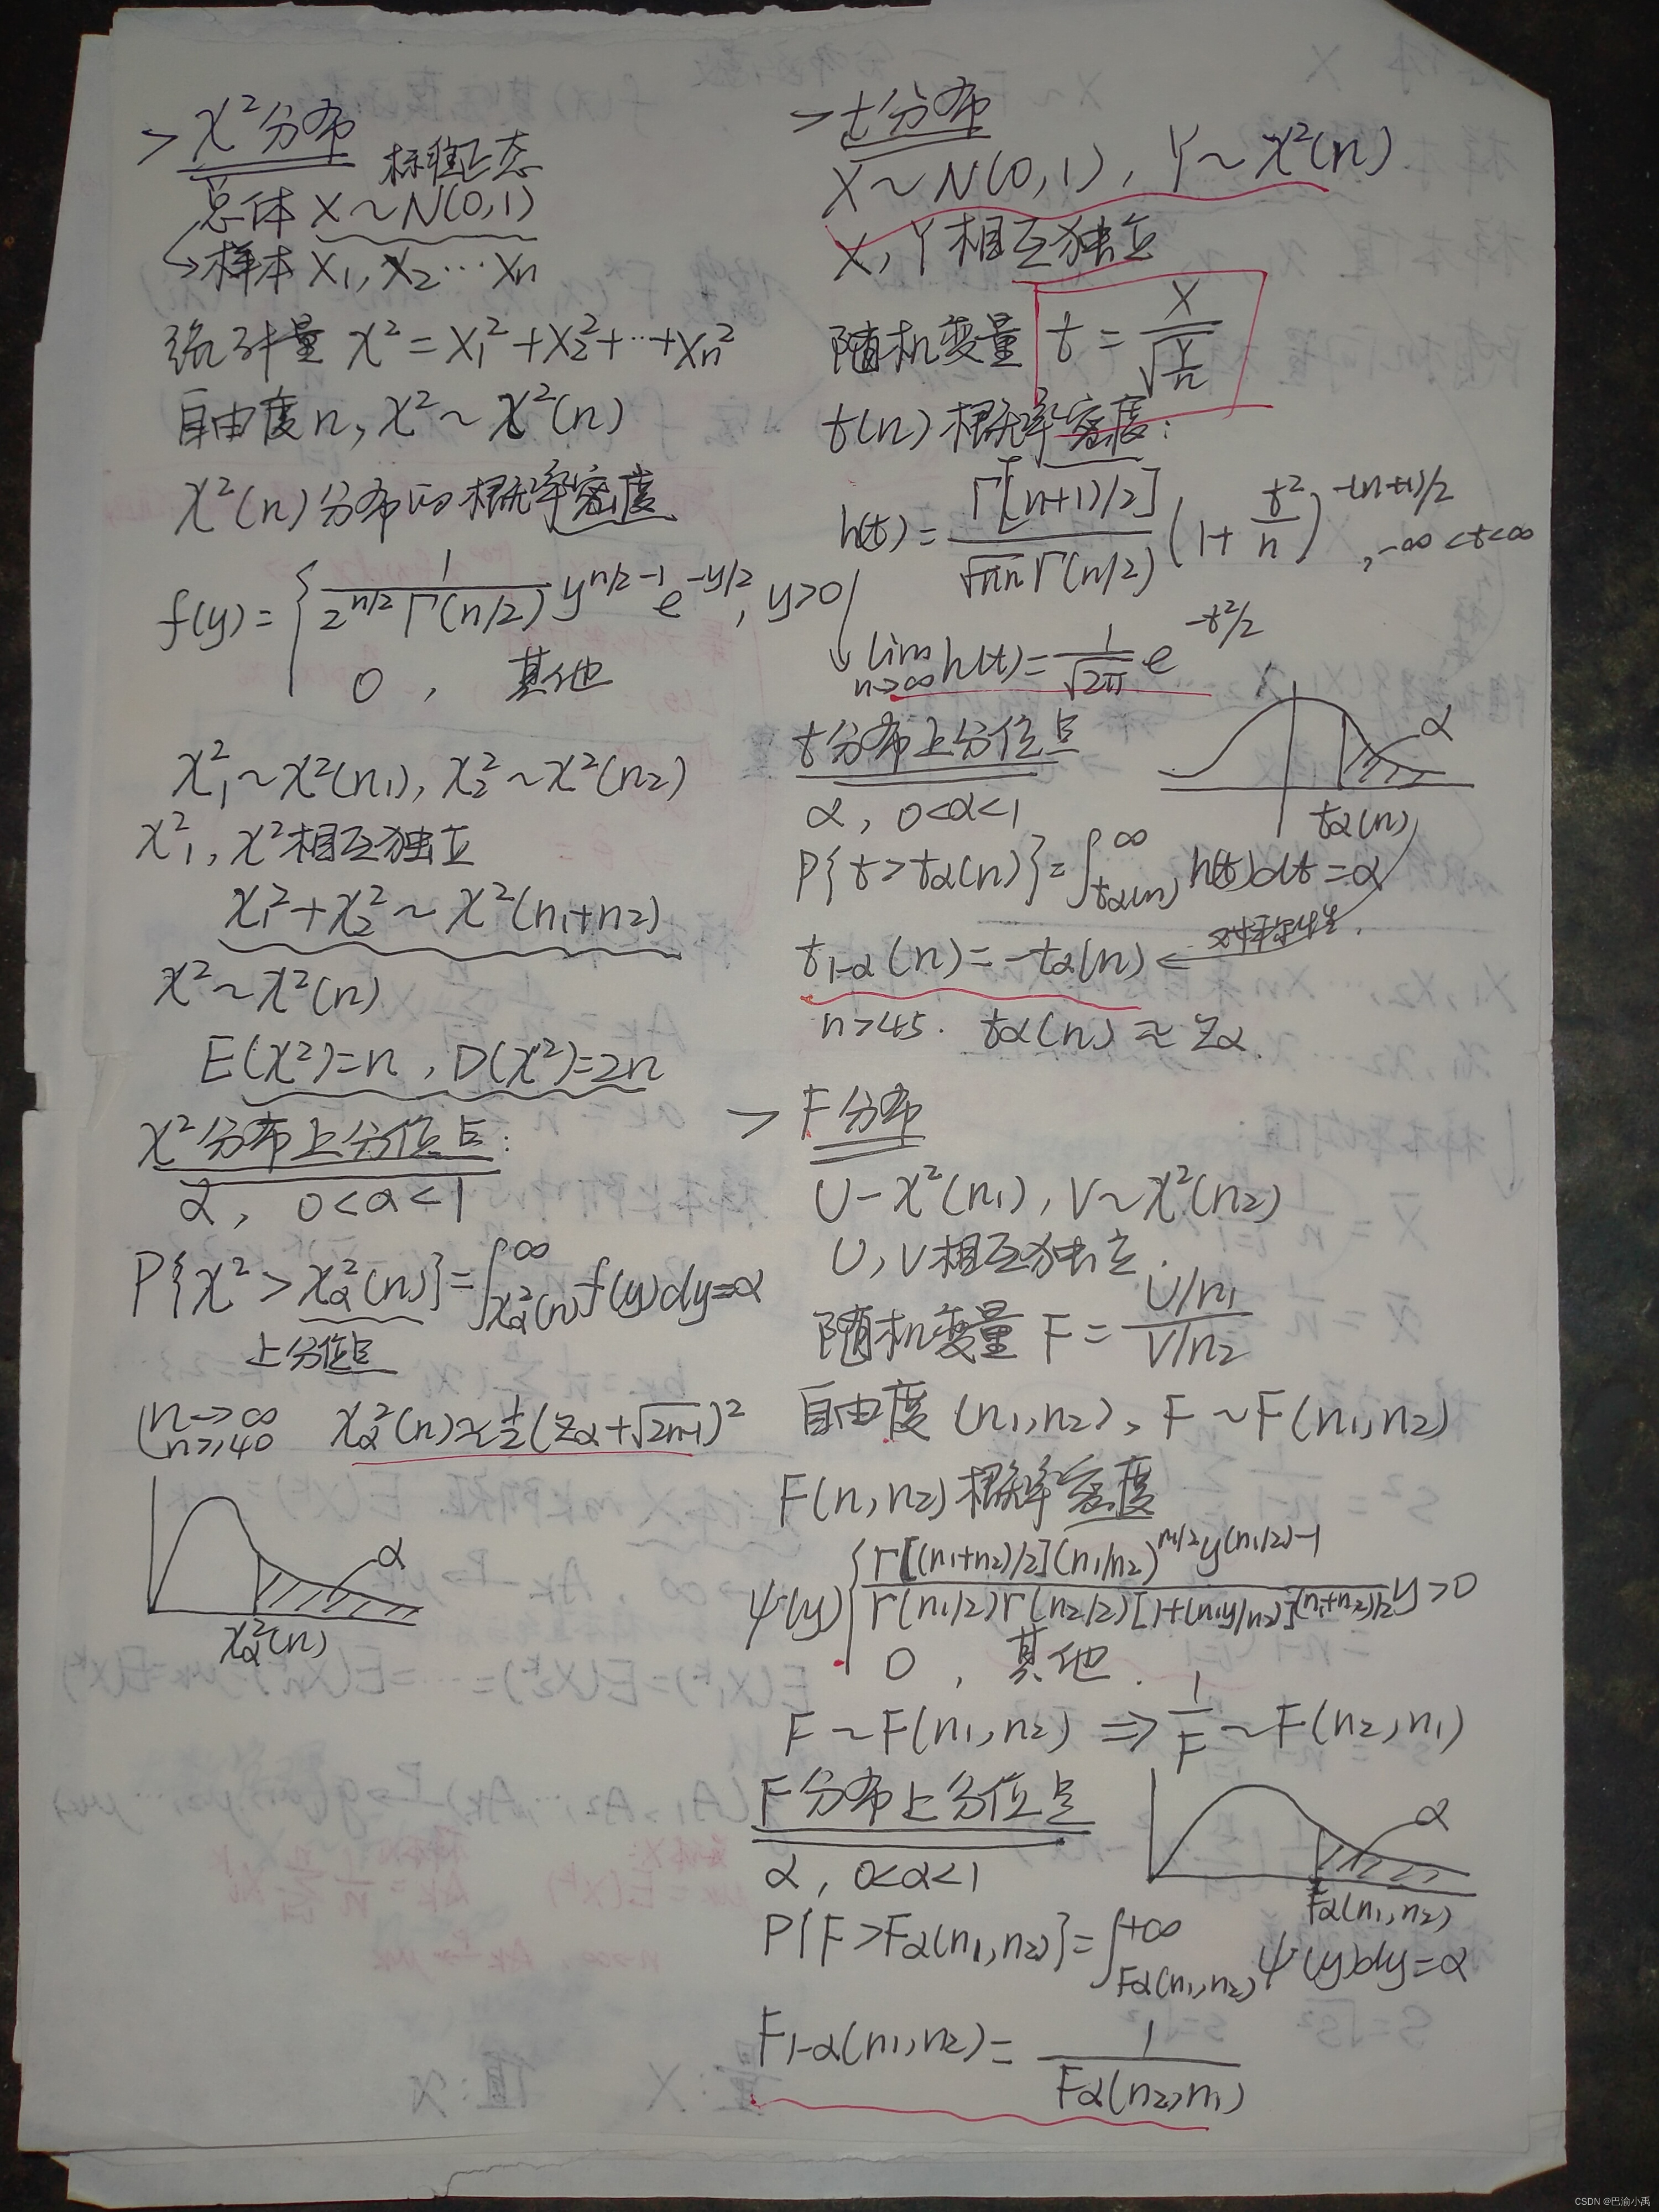 > χ²分布
标准正态
总体 X~N(0,1)
↳样本 X₁, X₂…Xn
统计量 χ² = X₁²+X₂²+…+Xn²
自由度n, χ²~χ²(n)
χ²(n)分布的概率密度
f(y)= { 1/(2^(n/2) Γ(n/2)) y^(n/2-1) e^(-y/2), y>0
0, 其他
χ₁²~χ²(n₁), χ₂²~χ²(n₂)
χ₁², χ²相互独立
χ₁²+χ₂²~χ²(n₁+n₂)
χ²~χ²(n)
E(χ²)=n, D(χ²)=2n
χ²分布上分位点:
α, 0<α<1
P{χ²>χ²α(n)}=∫_{χ²α(n)}^{∞} f(y)dy=α
上分位点
(n→∞
n≥40 χ²α(n)≈½(zα+√(2n-1))²
α
χ²α(n)
> t分布
X~N(0,1), Y~χ²(n)
X, Y相互独立
随机变量 t = X/√(Y/n)
t(n)概率密度:
h(t)= Γ[n+1)/2]/(√(πn) Γ(n/2)) (1+t²/n)^(-(n+1)/2), -∞<t<∞
↓ lim_{n→∞} h(t)= 1/√(2π) e^(-t²/2)
t分布上分位点
α
α, 0<α<1
tα(n)
P{t>tα(n)}=∫_{tα(n)}^{∞} h(t)dt=α
对称性
t₁₋α(n)=-tα(n) ←
n>45. tα(n)≈zα.
> F分布
U-χ²(n₁), V~χ²(n₂)
U, V相互独立.
随机变量 F = (U/n₁)/(V/n₂)
自由度 (n₁,n₂), F~F(n₁,n₂)
F(n,n₂)概率密度
ψ(y) { Γ[(n₁+n₂)/2](n₁/n₂)^(n₁/2) y^((n₁/2)-1) / Γ(n₁/2)Γ(n₂/2)[1+(n₁y/n₂)]^((n₁+n₂)/2) y>0
0, 其他.
F~F(n₁,n₂) ⇒ 1/F ~F(n₂,n₁)
F分布上分位点
α
α, 0<α<1
Fα(n₁,n₂)
P{F>Fα(n₁,n₂)}=∫_{Fα(n₁,n₂)}^{+∞} ψ(y)dy=α
F₁₋α(n₁,n₂)= 1/Fα(n₂,n₁)
CSDN @巴渝小禹